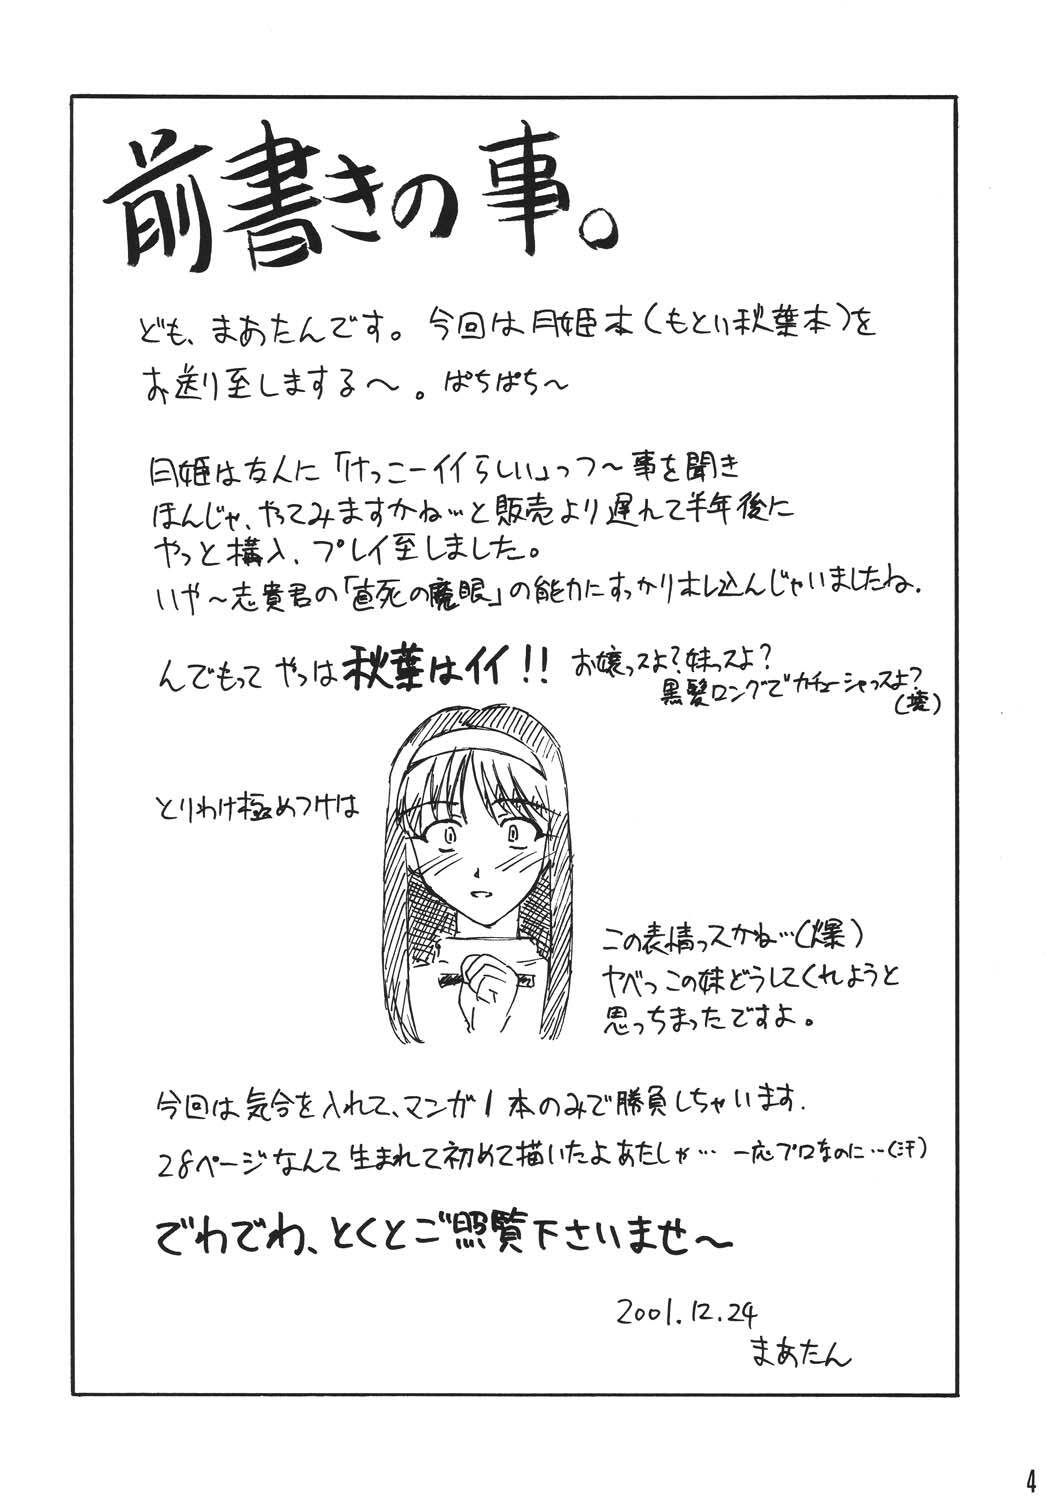 前書きの事。
ども、まあたんです。今回は月姫本(もとい秋葉本)を
お送り至しまする～。ぱちぱち～
月姫は友人に「けっこーイイらしい」っつ～事を聞き
ほんじゃ、やってみますかね…と販売より遅れて半年後に
やっと構入、プレイ至しました。
いや～志貴君の「直死の魔眼」の能力にすっかりホレ込んじゃいましたね.
んでもって やっは 秋葉はイイ!! お嬢っスよ?妹っスよ?
黒髪ロングでカチューシャっスよ?
(壊)
とりわけ極めつけは
この表情っスかね…(爆)
ヤベっこの妹どうしてくれようと
思っちまったですよ。
今回は気合を入れて、マンガ1本のみで勝負しちゃいます.
28ページなんて生まれて初めて描いたよあたしゃ… 一応プロなのに…(汗)
でわでわ、とくとご照覧下さいませ～
2001.12.24
まあたん
4